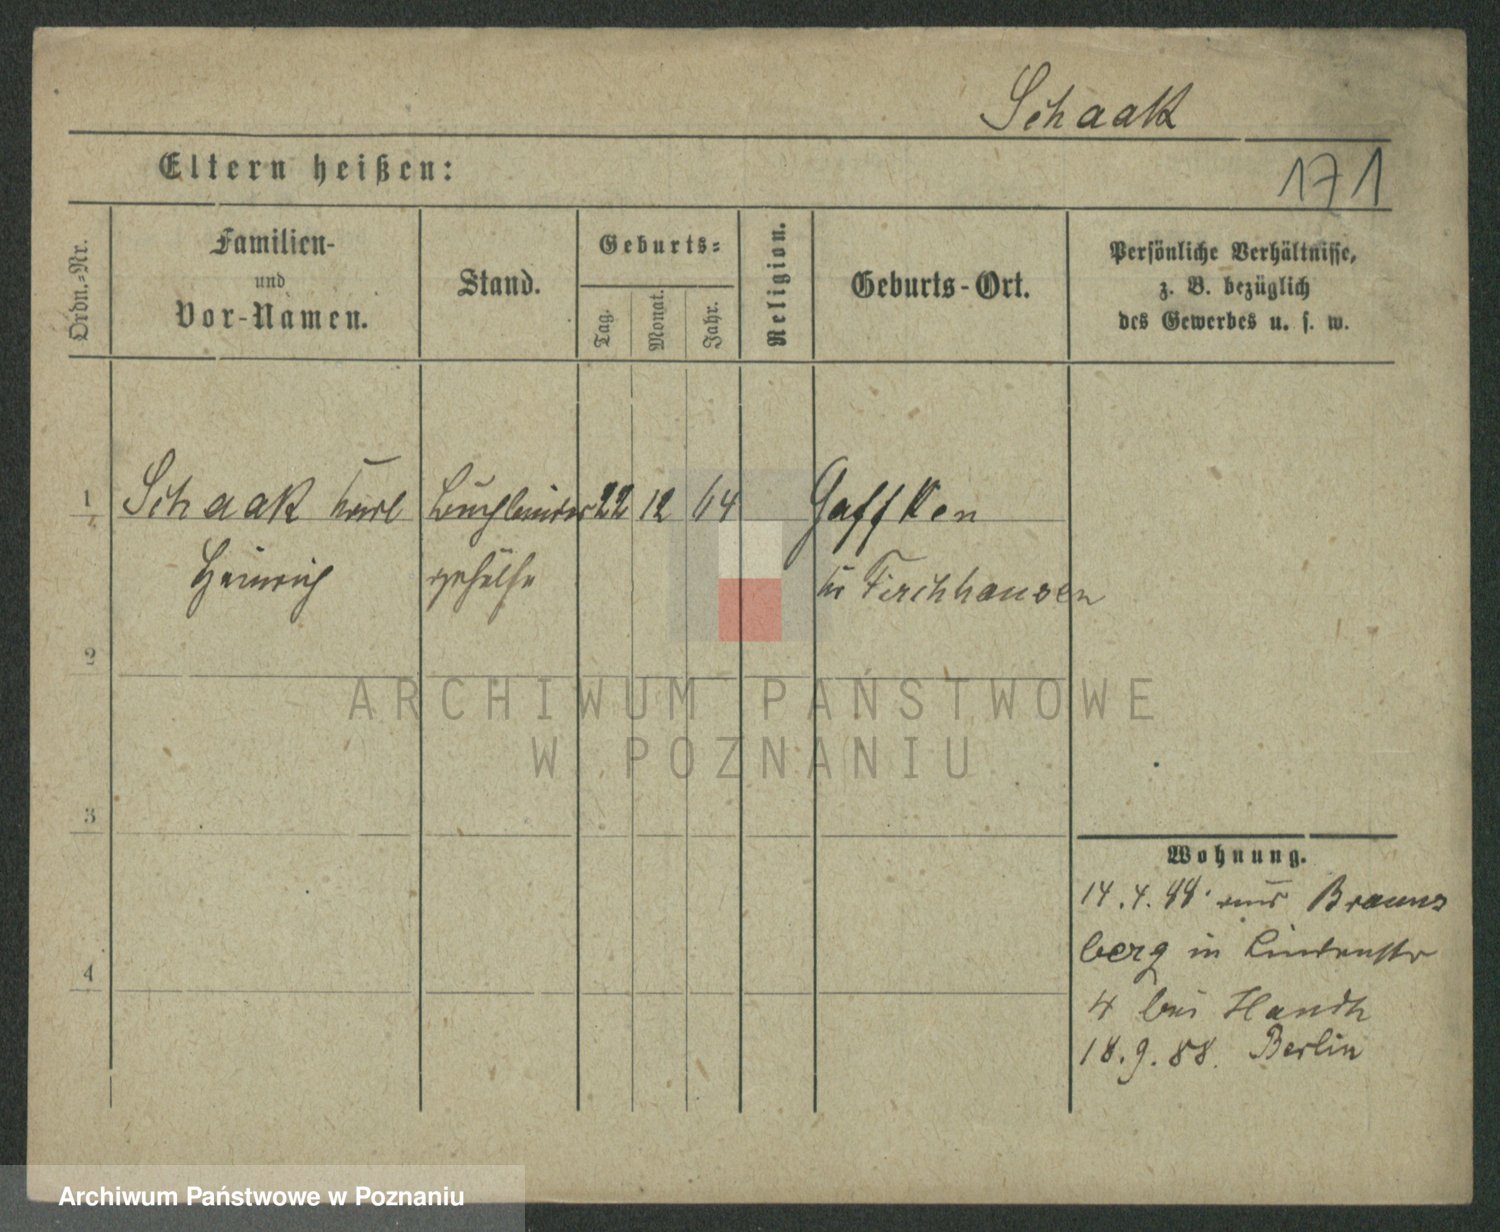 Schaak
Eltern heißen:
171
Ordn.-Nr.
Familien-
und
Vor-Namen.
Stand.
Geburts-
Tag.
Monat.
Jahr.
Religion.
Geburts-Ort.
Persönliche Verhältnisse,
z. B. bezüglich
des Gewerbes u. s. w.
1
Schaak Karl Buchbinder 22 12 64 Gaffken
Heinrich gehülfe Kr Fischhausen
2
ARCHIWUM PAŃSTWOWE
W POZNANIU
3
Wohnung.
14.4.88. aus Brauns
berg in Lindenstr
4
4 bei Handk
18.9.88. Berlin
Archiwum Państwowe w Poznaniu